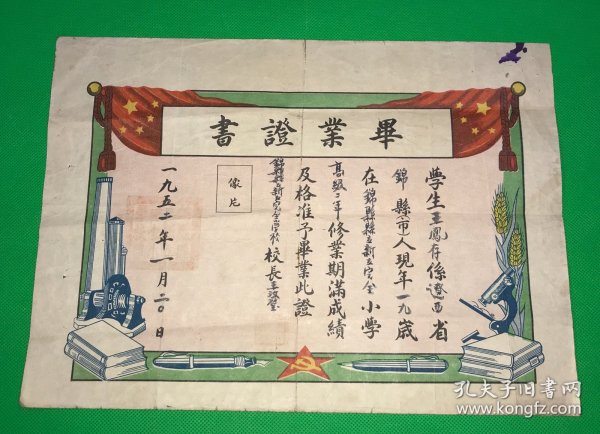 畢業證書
學生王鳳存係遼西省
錦縣(市)人現年一九歲
在錦縣縣立新立完全小學
高級二年修業期滿成績
及格准予畢業此證
像片
校長
一九五二年一月二〇日
孔夫子旧书网
www.kongfz.com